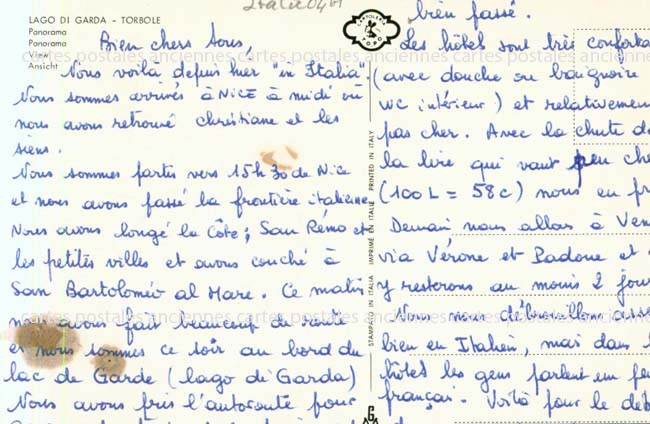 LAGO DI GARDA - TORBOLE
Panorama
Panorama
View
Ansicht
Bien chers tous,
Nous voilà depuis hier "in Italia"
Nous sommes arrivés à NICE à midi où
nous avons retrouvé chrétiane et les
siens.
Nous sommes partis vers 15h30 de Nice
et nous avons passé la frontière italienne
Nous avons longé la Côte; San Rémo et
les petites villes et avons couché à
San Bartoloméo al Mare. Ce matin
nous avons fait beaucoup de route
et nous sommes ce soir au bord du
lac de Garde (lago di Garda)
Nous avons pris l'autoroute pour
CARTOLERIA
TOPO
STAMPATO IN ITALIA IMPRIMÉ EN ITALIE PRINTED IN ITALY
bien passé.
Les hôtel sont très conforta
(avec douche ou baignoire
WC intérieur) et relativemen
pas cher. Avec la chute de
la lire qui vaut peu che
(100L = 58c) nous en pr
Demain nous allons à Ven
via Vérone et Padoue et
y resterons au moins 2 jour
Nous nous débrouillons asse
bien en Italien, mais dans l
hôtel les gens parlent un peu
français. Voilà pour le déb
cartes postales anciennes cartes postales anciennes cartes postales anciennes